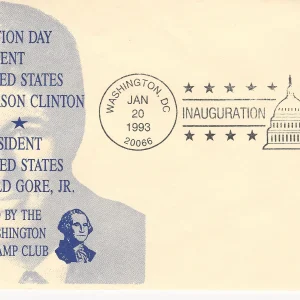 TION DAY
ENT
TED STATES
RSON CLINTON
SIDENT
TED STATES
LD GORE, JR.
D BY THE
SHINGTON
AMP CLUB
WASHINGTON, DC
JAN
20
1993
20066
INAUGURATION